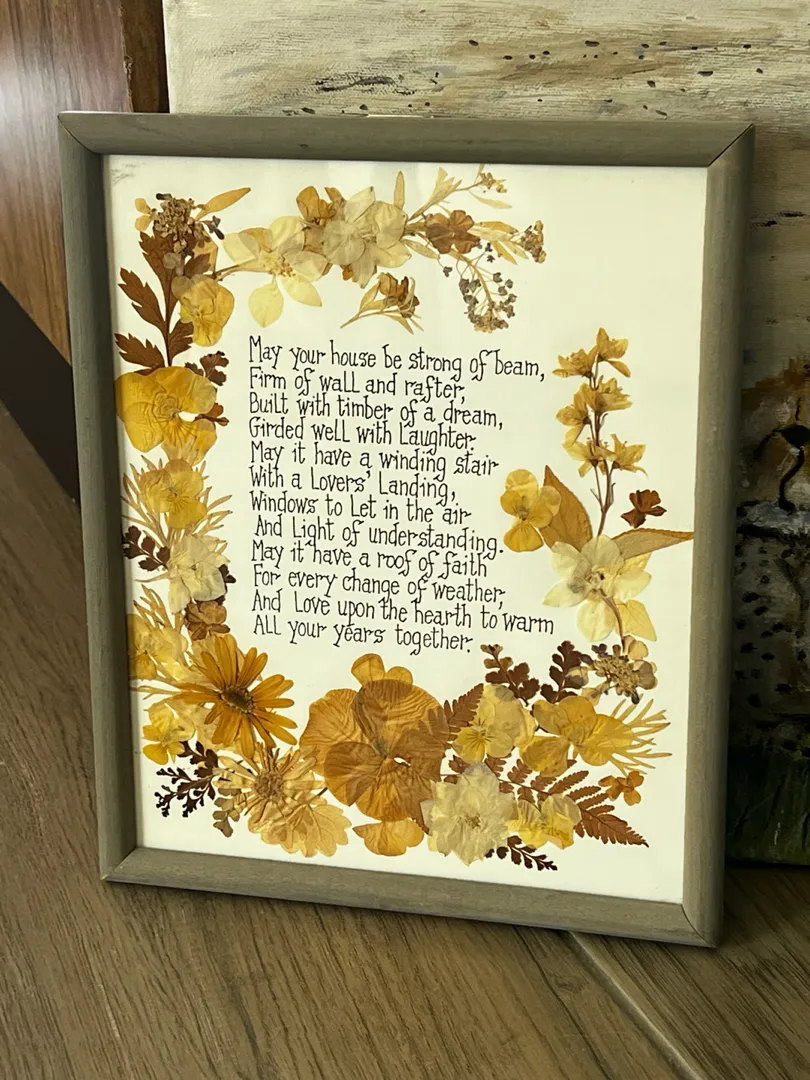 May your house be strong of beam,
Firm of wall and rafter,
Built with timber of a dream,
Girded well with Laughter.
May it have a winding stair
With a Lovers' Landing,
Windows to Let in the air
And Light of understanding.
May it have a roof of faith
For every change of weather,
And Love upon the hearth to warm
ALL your years together.